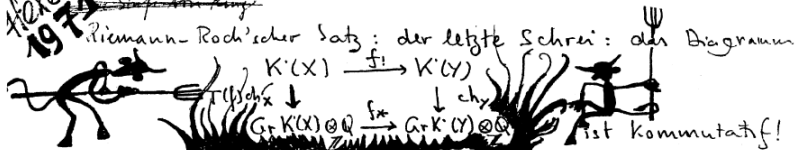 1971
Riemann-Roch'scher Satz: der letzte Schrei: das Diagramm
K˙(X) f! → K˙(Y)
T(f)chX ↓ ↓ chY
Gr K˙(X)⊗Q f* → Gr K˙(Y)⊗Q
ℤ ist kommutatif!